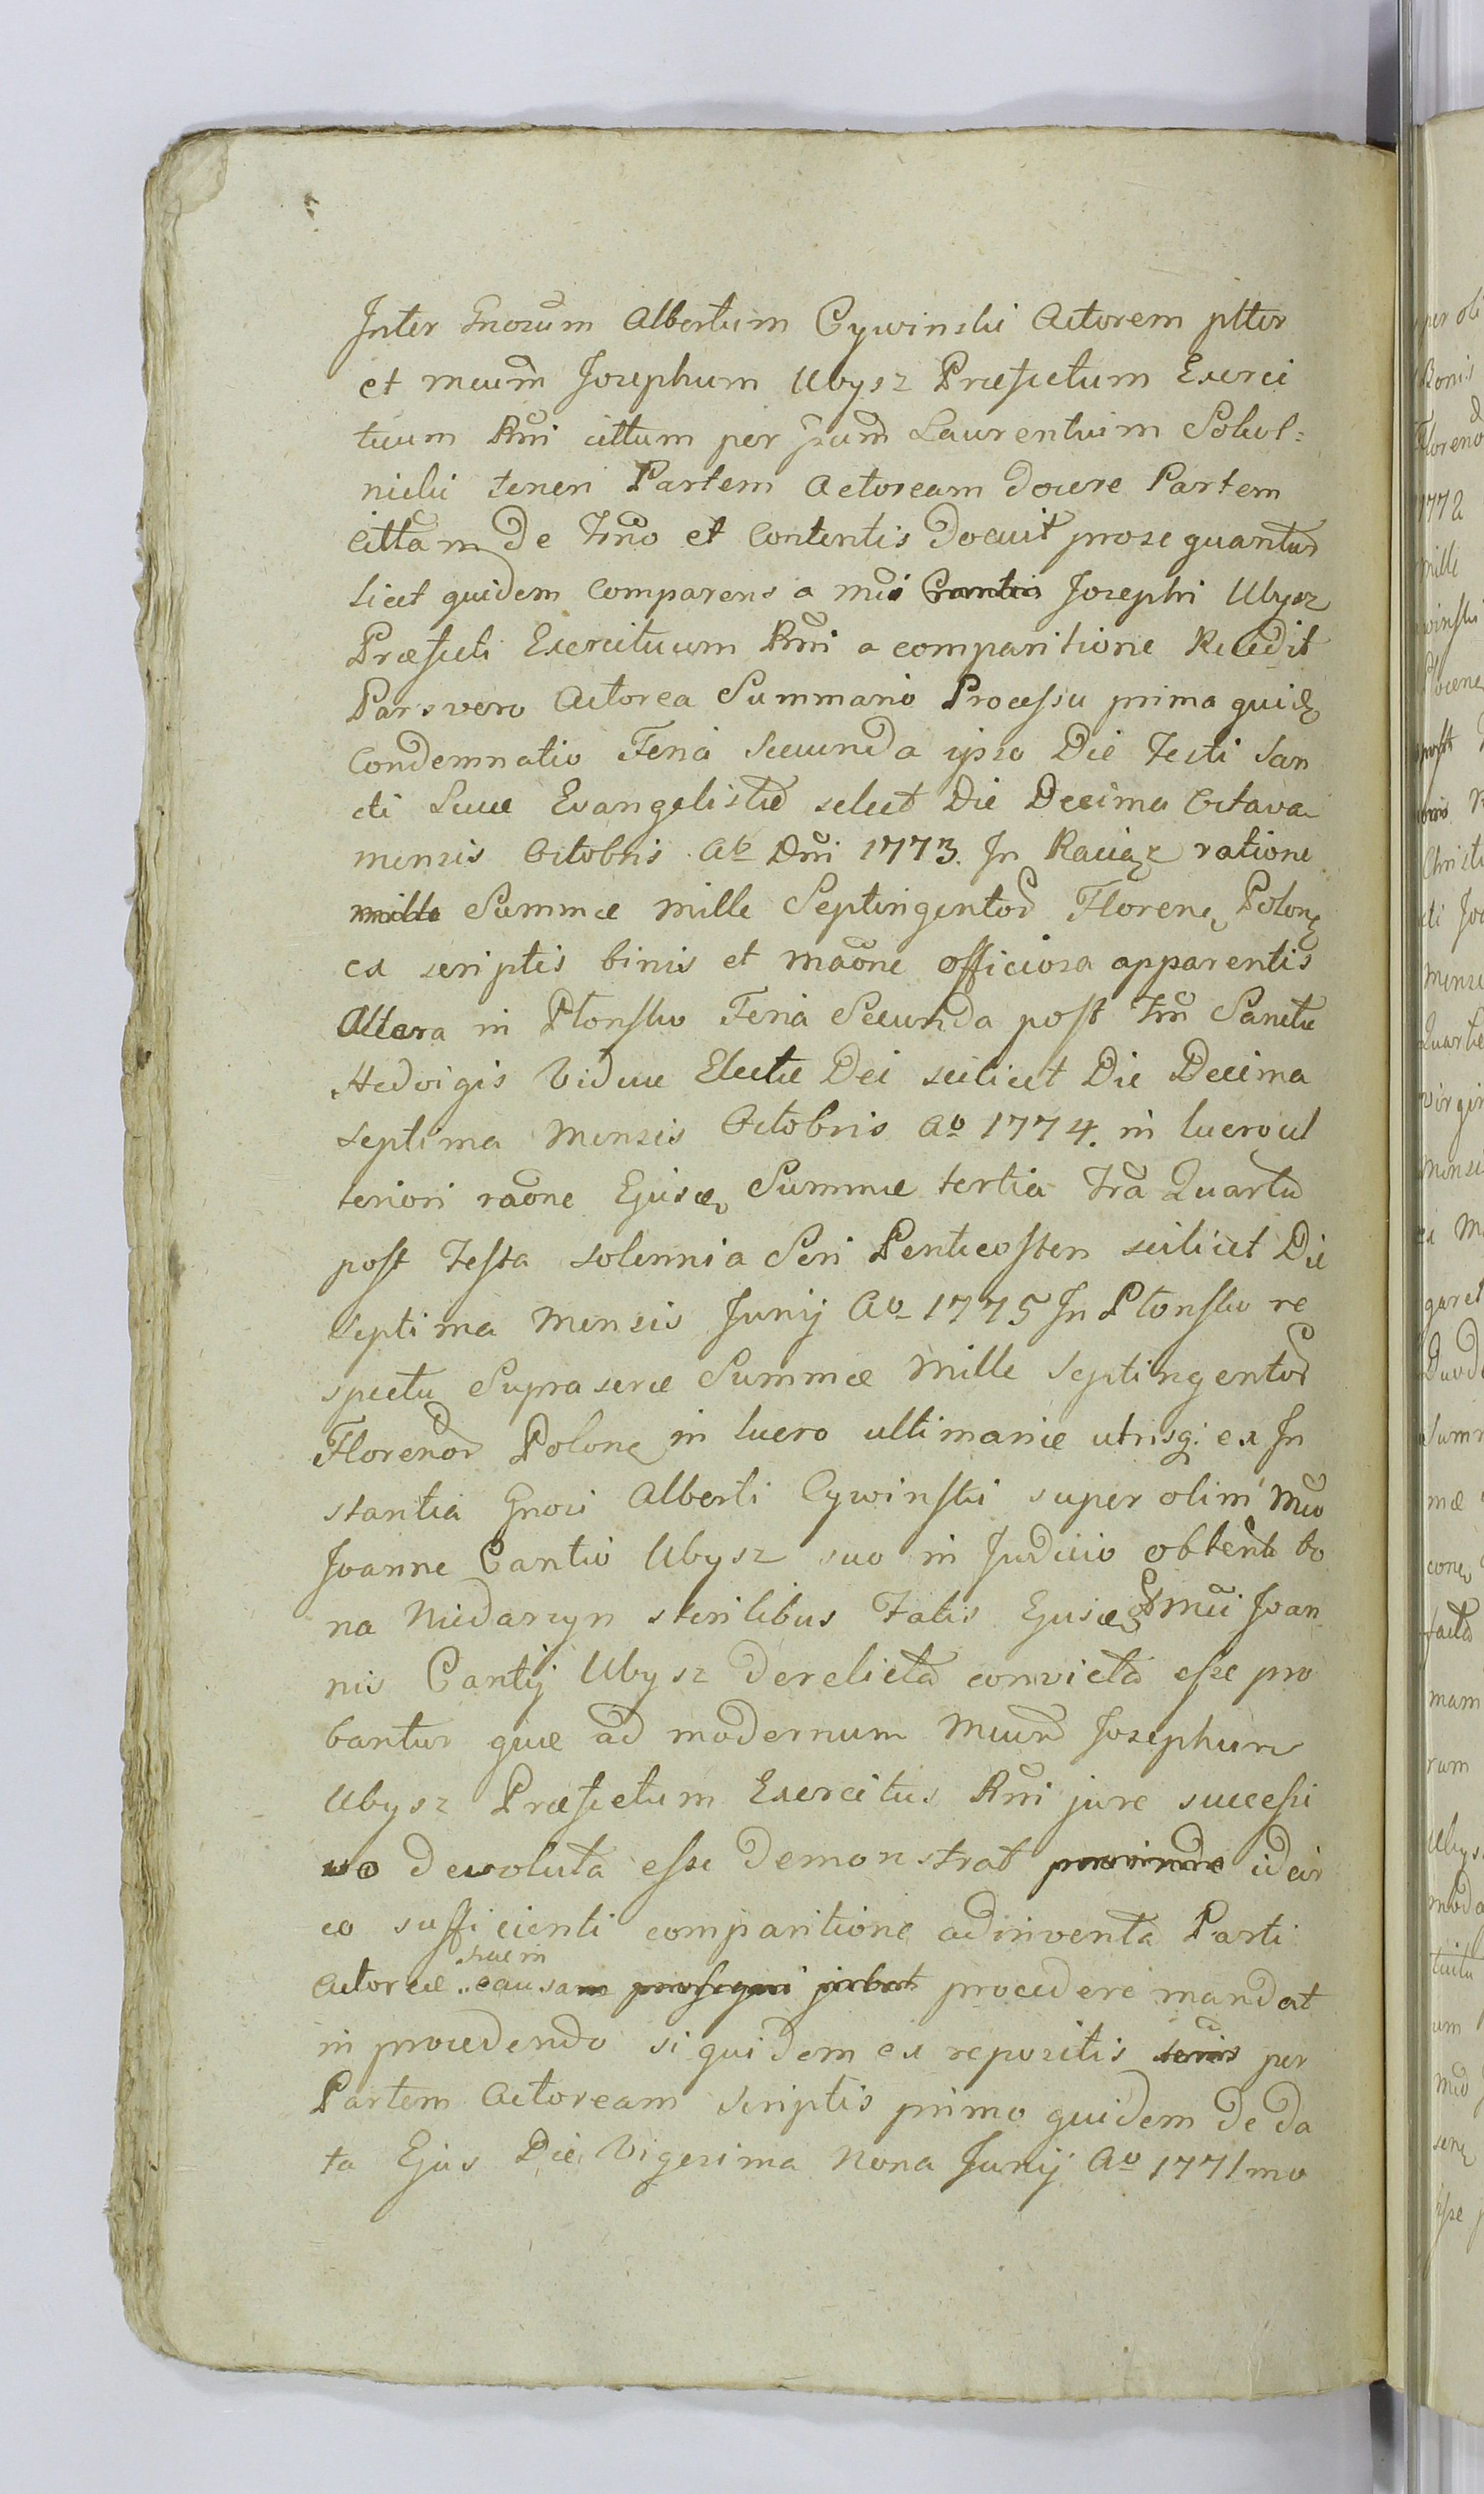 Inter Gnosum Albertum Cywinski Actorem pltter
et mcum Josephum Ubysz Præfectum Exerci
tuum Rni cittum per Laurentium Sokol=
nicki teneri Partem Actoream docere Partem
Cittam De Trno et Contentis Docuit prosequantur
licet quidem Comparens a mci Josephi Ubysz
Præfecti Exercituum Rni a comparitione Recedit
Pars vero Actorea Summario Processu prima quidę
Condemnatio Feria Secunda ipso Die Festi San
cti Lucæ Evangelistæ scilcet Die Decima Octava
mensis Octobris Ao Dni 1773. In Raciąz ratione
mille Summæ mille Septingentor Florenę Polonę
ex scriptis binis et maone officiosa apparentis
Altera in Płonsko Feria Secunda post Fm Sanctæ
Hedvigis Viduæ Electæ Dei scilicet Die Decima
septima Mensis Octobris Ao 1774. in lucro ul
teriori raone Ejusdę Summæ tertia Fra Quarta
post Festa solennia Sri Pentecosten scilicet Die
Septima Mensis Junij Ao 1775 In Płonsko re
spectu Suprascræ Summæ Mille Septingentor
Florenor Polonę in lucro ultimariæ utrisq: ex In
stantia Gnosi Alberti Cywinski super olim Mco
Joanne Cantio Ubysz suo in Judicio obtenta bo
na Niedarzyn sterilibus Fatis Ejusdę Mci Joan
nis Cantij Ubysz derelicta convicta esse pro
bantur quæ ad modernum Mcum Josephum
Ubysz Præfectum Exercitus Rni jure successi
vo devoluta esse Demonstrat proinde idcir
co sufficienti comparitione adinventa Parti
Actoreæ suæ in causam prosequi jubet procedere mandat
in procedendo siquidem ex repositis per
Partem Actoream Scriptis primo quidem de da
ta Ejus Die Vigesima Nona Junij Ao 1771mo